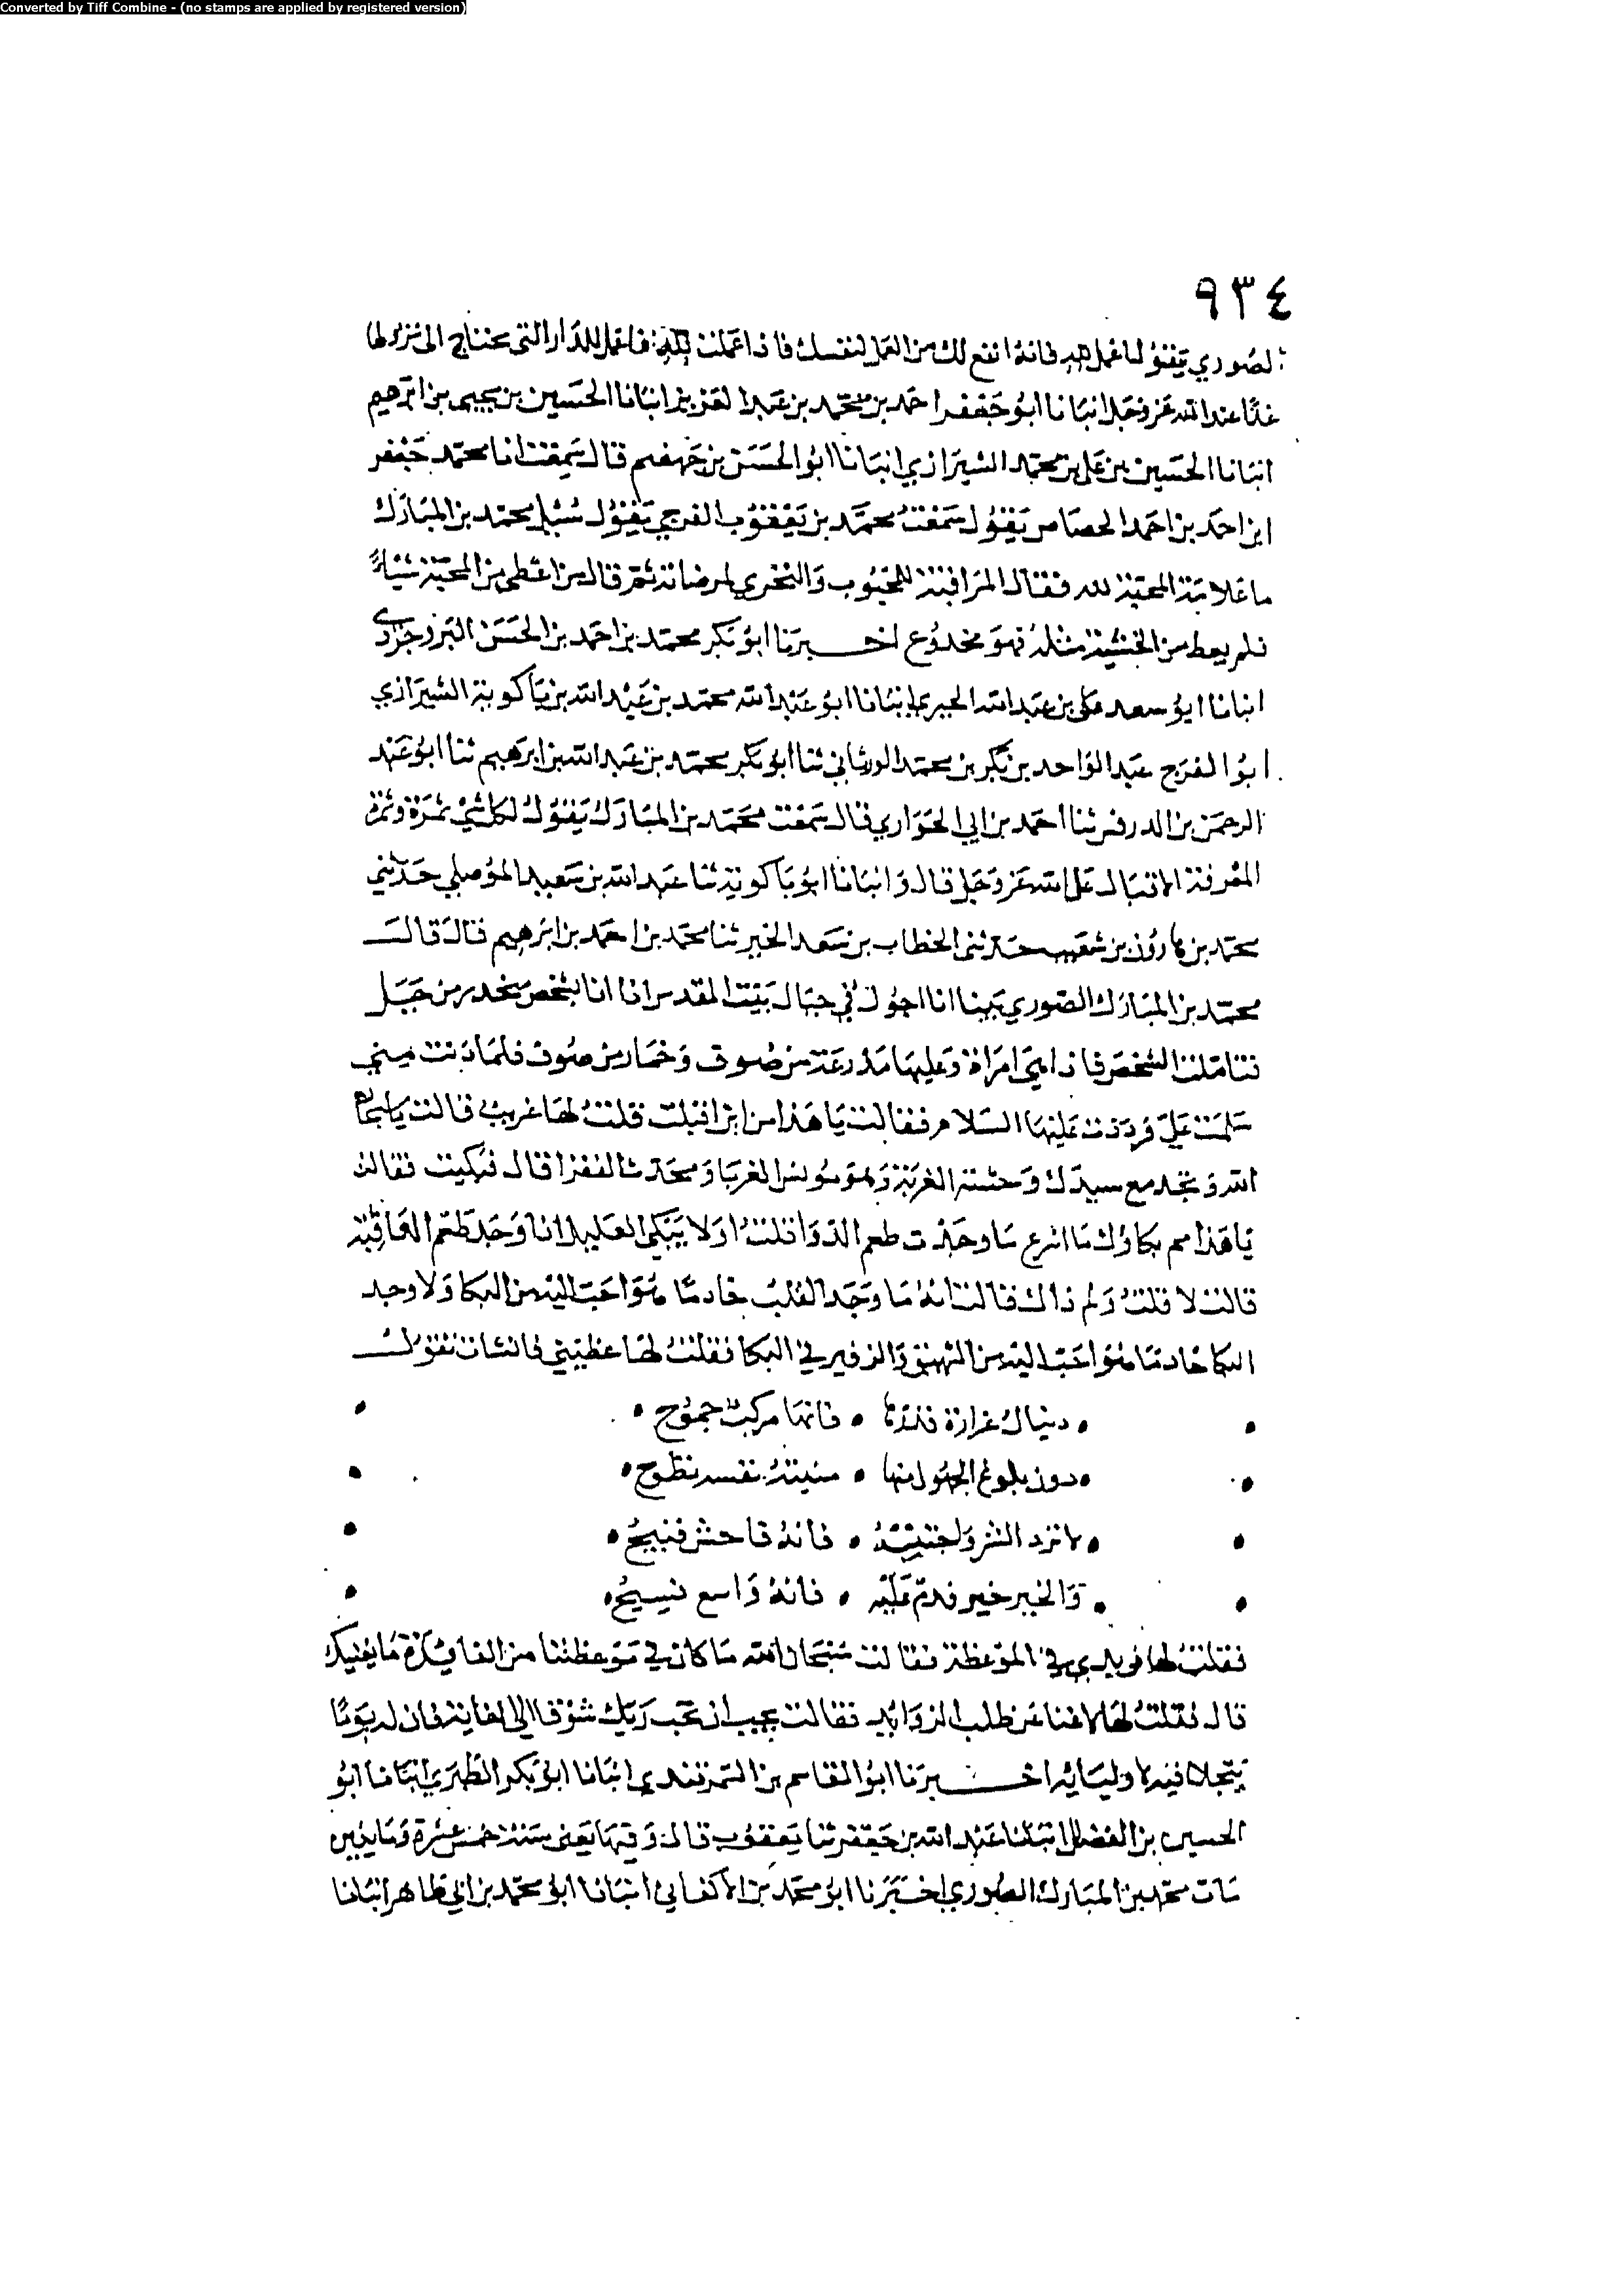 Converted by Tiff Combine - (no stamps are applied by registered version)
٩٣٤
الصوري يقول اعمل لله فانه انفع لك من العمل لنفسك فاذا عملت لله فاعمل للدار التي تحتاج الى نزولها
غدا عند الله عز وجل انبانا ابو جعفر احمد بن محمد بن عبد العزيز انبانا الحسين بن يحيى بن ابرهيم
انبانا الحسين بن علي بن محمد الشيرازي انبانا ابو الحسن بن جهضم قال سمعت انا محمد جعفر
ابن احمد بن احمد الحصاص يقول سمعت محمد بن يعقوب الفرجي يقول سئل محمد بن المبارك
ما علامة المحبة لله فقال المراقبة للمحبوب والتحري لمرضاته ثم قال من اعطي من المحبة شيئا
فلم يعط من الخشية مثله فهو مخدوع اخبرنا ابو بكر محمد بن احمد بن الحسن البروجردي
انبانا ابو سعد علي بن عبد الله الحيري انبانا ابو عبد الله محمد بن عبد الله بن باكوية الشيرازي
ابو الفرج عبد الواحد بن بكر بن محمد الورثاني ثنا ابو بكر محمد بن عبد الله بن ابرهيم ثنا ابو عبد
الرحمن بن الدرفس ثنا احمد بن ابي الحواري قال سمعت محمد بن المبارك يقول لكل شي ثمرة وثمرة
المعرفة الاقبال على الله عز وجل قال وانبانا ابو باكوية ثنا عبد الله بن سعيد الموصلي حدثني
محمد بن هارون بن شعيب حدثني الخطاب بن سعد الخير ثنا محمد بن احمد بن ابرهيم قال قال
محمد بن المبارك الصوري بينا انا اجول في جبال بيت المقدس اذا انا بشخص منحدر من جبل
فتاملت الشخص فاذا هي امراة وعليها مدرعة من صوف وخمار من صوف فلما دنت مني
سلمت علي فرددت عليها السلام فقالت يا هذا من اين اقبلت قلت لها غريب قالت يا سبحان
الله وتجد مع سيدك وحشة الغربة وهو مونس الغربا ومحدث الفقرا قال فبكيت فقالت
يا هذا مم بكاؤك ما اسرع ما وجدت طعم الدوا قلت اولا يبكي العليل اذا وجد طعم العافية
قالت لا قلت ولم ذاك قالت انه ما وجد القلب خادما هو احب اليه من البكا ولا وجد
البكا خادما هو احب اليه من الشهيق والزفير في البكا فقلت لها عظيني فانشات تقول
دنياك غرارة فذرها • فانها مركب جموح
دون بلوغ الجهول منها • منيته نفسه تطوح
لا تزد الشر واجتنبه • فانه فاحش قبيح
والخير خير قدم عليه • فانه واسع فسيح
فقلت لها زيديني في الموعظة فقالت سبحان الله ما كان في موعظتنا من الفايدة ما يغنيك
قال فقلت لها لا غنا عن طلب الزوايد فقالت يجب ان تحب ربك شوقا الى لقايه فان له يوما
يتجلا فيه لاوليائه اخبرنا ابو القاسم بن السمرقندي انبانا ابو بكر الطبري انبانا ابو
الحسين بن الفضل انبانا عبد الله بن جعفر ثنا يعقوب قال وفيها يعني سنة خمس عشرة ومايتين
مات محمد بن المبارك الصوري اخبرنا ابو محمد بن الاكفاني انبانا ابو محمد بن ابي طاهر انبانا